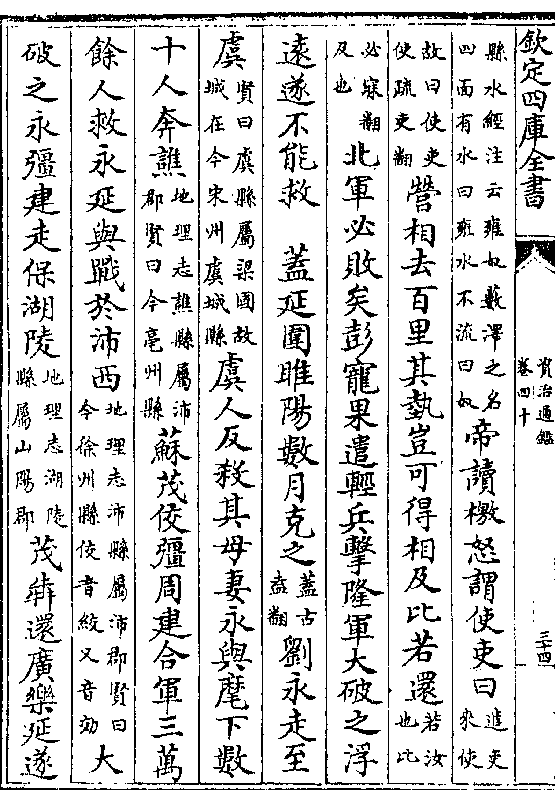 欽定四庫全書
資治通鑑
卷四十
三十四
縣水經注云雍奴藪澤之名
四面有水曰雍水不流曰奴
帝讀檄怒謂使吏曰
進吏
來使
故曰使吏
使疏吏翻
營相去百里其埶豈可得相及比若還
若汝
也比
必寐翻
及也
北軍必敗矣彭寵果遣輕兵擊隆軍大破之浮
遠遂不能救　蓋延圍睢陽數月克之
蓋古
盍翻
劉永走至
虞
賢曰虞縣屬梁國故
城在今宋州虞城縣
虞人反殺其母妻永與麾下數
十人奔譙
地理志譙縣屬沛
郡賢曰今亳州縣
蘇茂佼彊周建合軍三萬
餘人救永延與戰於沛西
地理志沛縣屬沛郡賢曰
今徐州縣佼音絞又音効
大
破之永彊建走保湖陵
地理志湖陵
縣屬山陽郡
茂犇還廣樂延遂